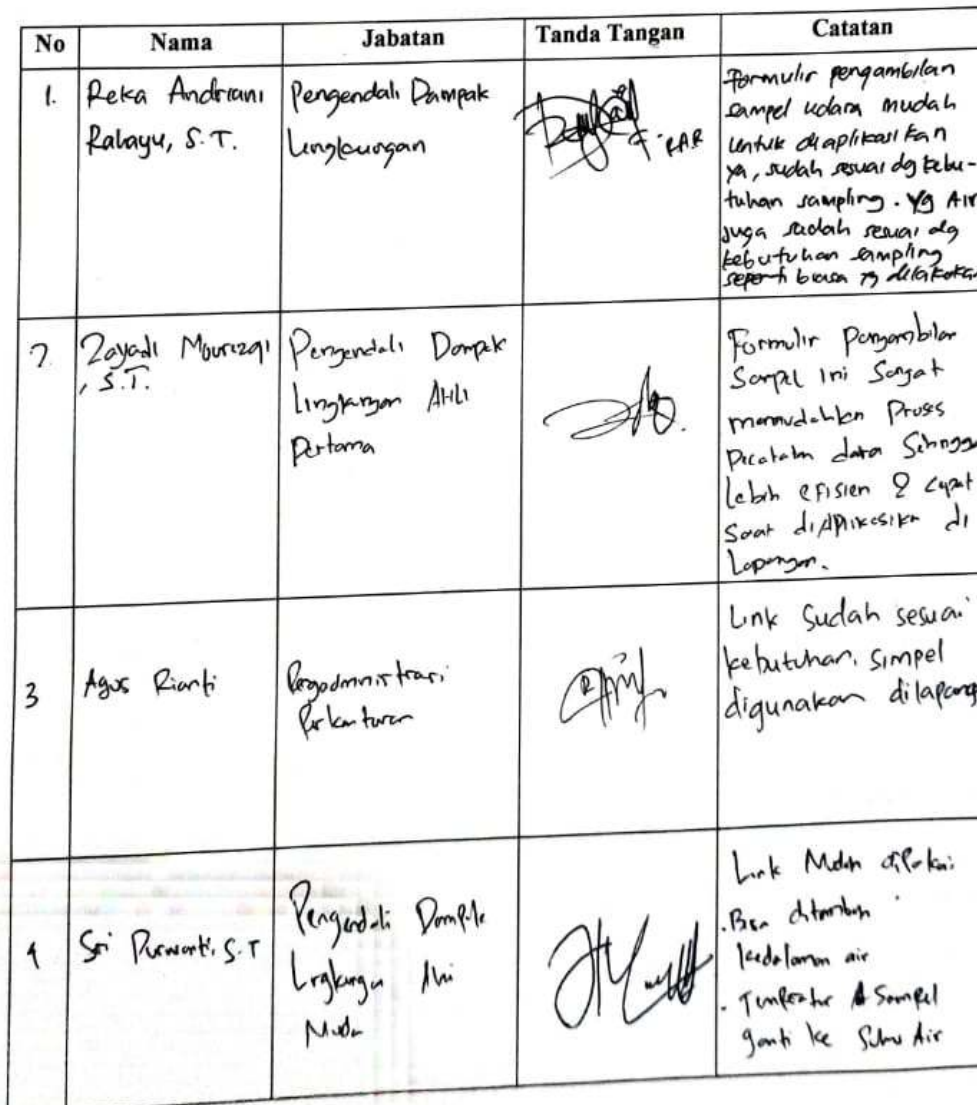 No Nama Jabatan Tanda Tangan Catatan
1. Reka Andriani
Rahayu, S.T.
Pengendali Dampak
Lingkungan
RAR
Formulir pengambilan
sampel udara mudah
untuk diaplikasikan
ya, sudah sesuai dg kebu-
tuhan sampling. Yg Air
juga sudah sesuai dg
kebutuhan sampling
seperti biasa yg dilakukan
2. Zayadi Mourizqi
, S.T.
Pengendali Dampak
Lingkungan Ahli
Pertama
Formulir Pengambilan
Sampel ini Sangat
memudahkan Proses
Pecatatan data Sehingga
lebih efisien & cepat
Saat diaplikasikan di
Lapangan.
3 Agus Rianti
Pengadministrasi
Perkantoran
Link Sudah sesuai
kebutuhan, simpel
digunakan dilapang
4 Sri Purwanti, S.T
Pengendali Dampak
Lingkungan Ahli
Muda
Link Mudah dipakai
. Bisa ditambah
kedalaman air
. Temperatur Sampel
ganti ke Suhu Air